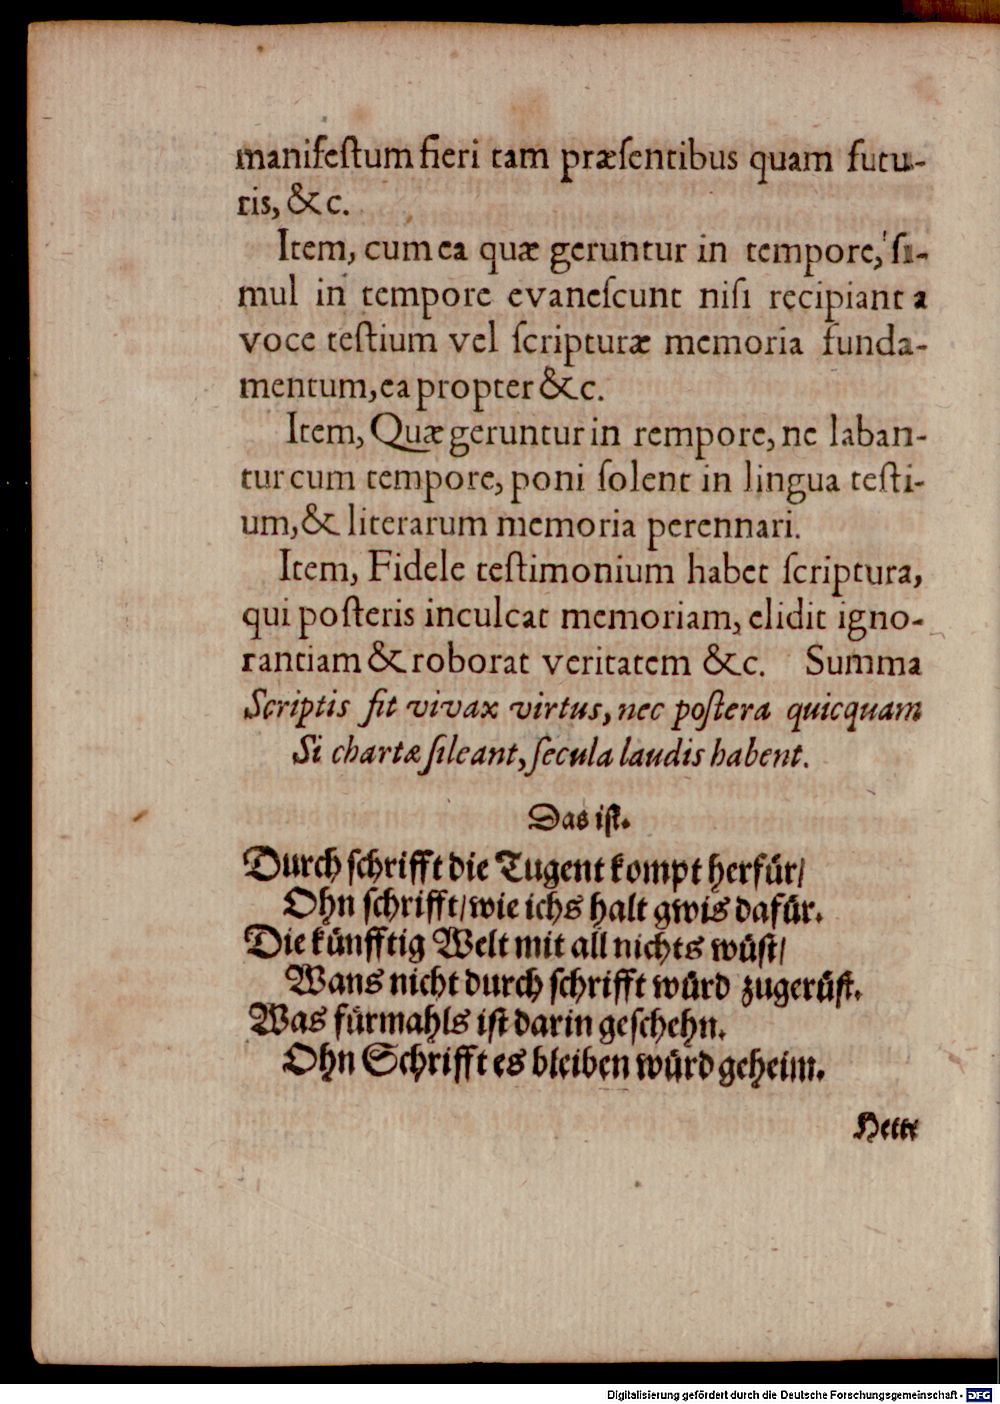 manifeſtum fieri tam præſentibus quam futu-
ris, &c.
Item, cum ea quæ geruntur in tempore, ſi-
mul in tempore evaneſcunt niſi recipiant a
voce teſtium vel ſcripturæ memoria funda-
mentum, ea propter &c.
Item, Quæ geruntur in tempore, ne laban-
tur cum tempore, poni ſolent in lingua teſti-
um, & literarum memoria perennari.
Item, Fidele teſtimonium habet ſcriptura,
qui poſteris inculcat memoriam, elidit igno-
rantiam & roborat veritatem &c. Summa
Scriptis fit vivax virtus, nec poſtera quicquam
Si chartæ ſileant, ſecula laudis habent.
Das iſt.
Durch ſchrifft die Tugent kompt herfür/
Ohn ſchrifft/ wie ichs halt gwis dafür.
Die künfftig Welt mit all nichts wüſt/
Wans nicht durch ſchrifft würd zugerüſt.
Was fürmahls iſt darin geſchehn.
Ohn Schrifft es bleiben würd geheim.
Hette
Digitalisierung gefördert durch die Deutsche Forschungsgemeinschaft - DFG